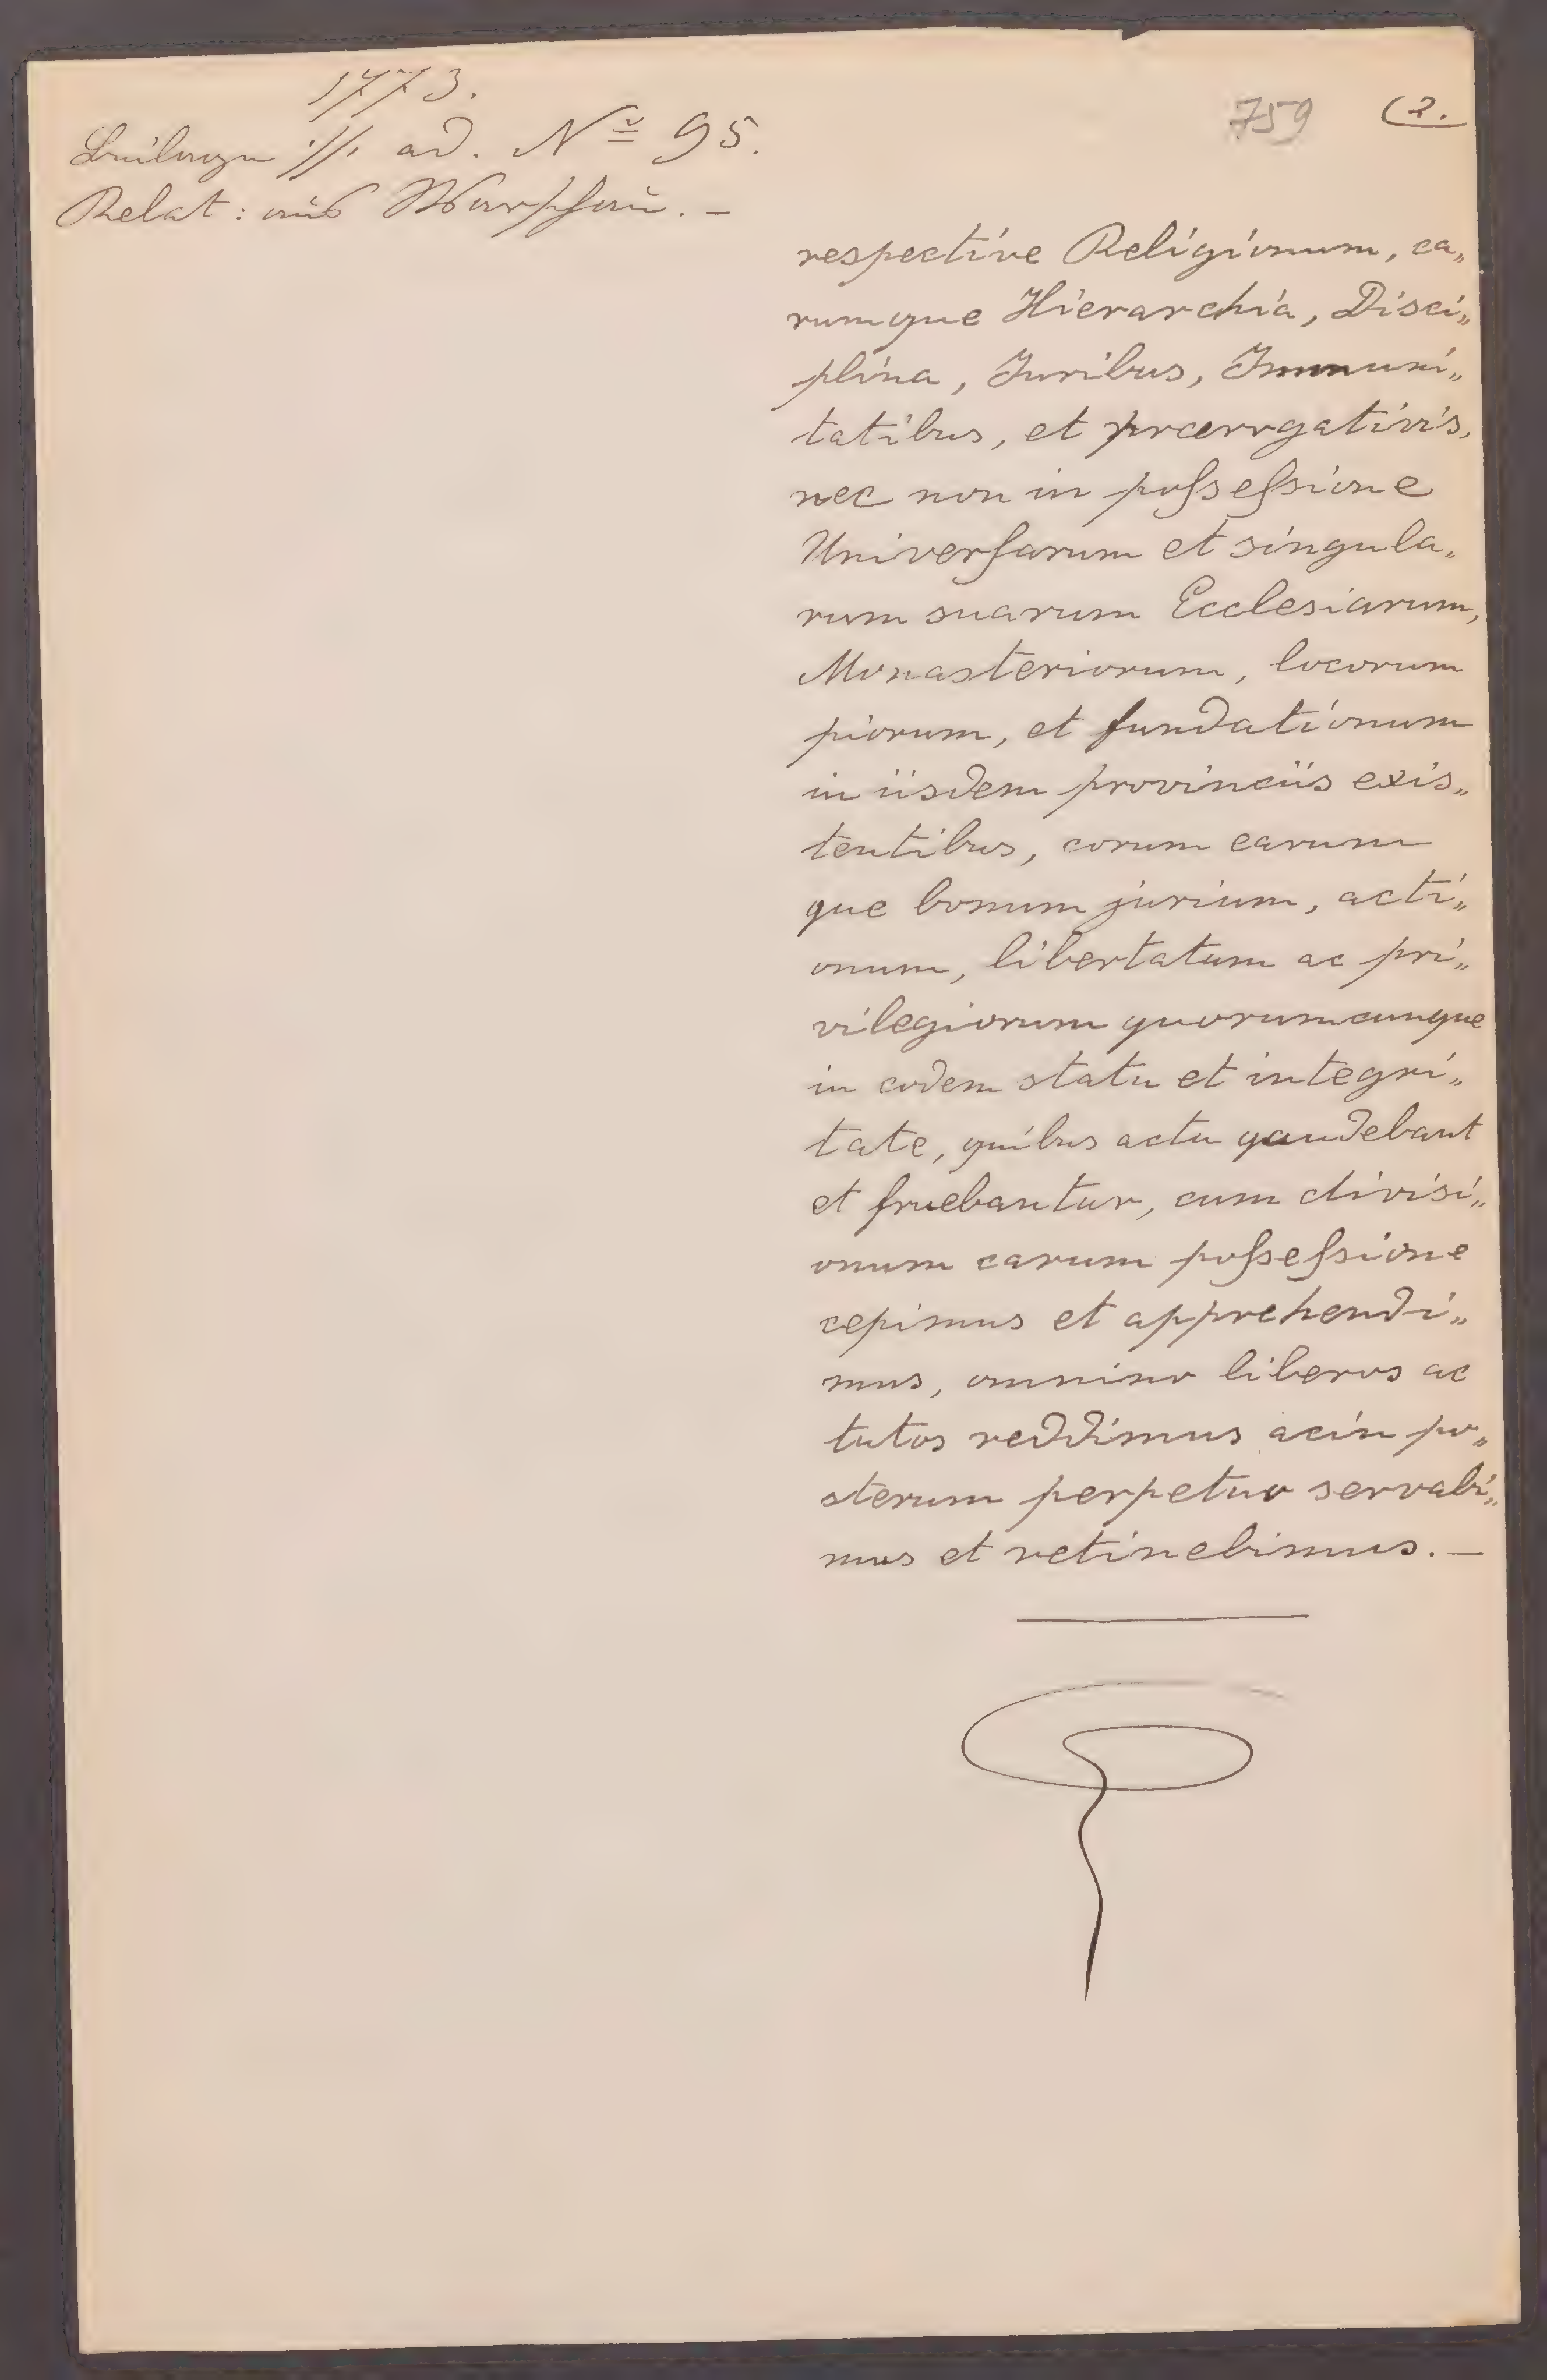 1773.
Beilage ·//. ad. Nº 95.
Relat: aus Warschau. –
759 (2.
respective Religionum, ea„
rumque Hierarchia, Disci„
plina, Juribus, Immuni„
tatibus, et praerogativis,
nec non in poſseſsione
Univerſarum et singula„
rum suarum Ecclesiarum,
Monasteriorum, locorum
piorum, et fundationum
in iisdem provinciis exis„
tentibus, eorum earum
que bonum jurium, acti„
onum, libertatum ac pri„
vilegiorum quorumcunque
in eodem statu et integri„
tate, quibus actu gaudebant
et fruebantur, cum divisi„
onum earum poſseſsione
cepimus et apprehendi„
mus, omnino liberos ac
tutos reddimus ac in po„
sterum perpetuo servabi„
mus et retinebimus. –